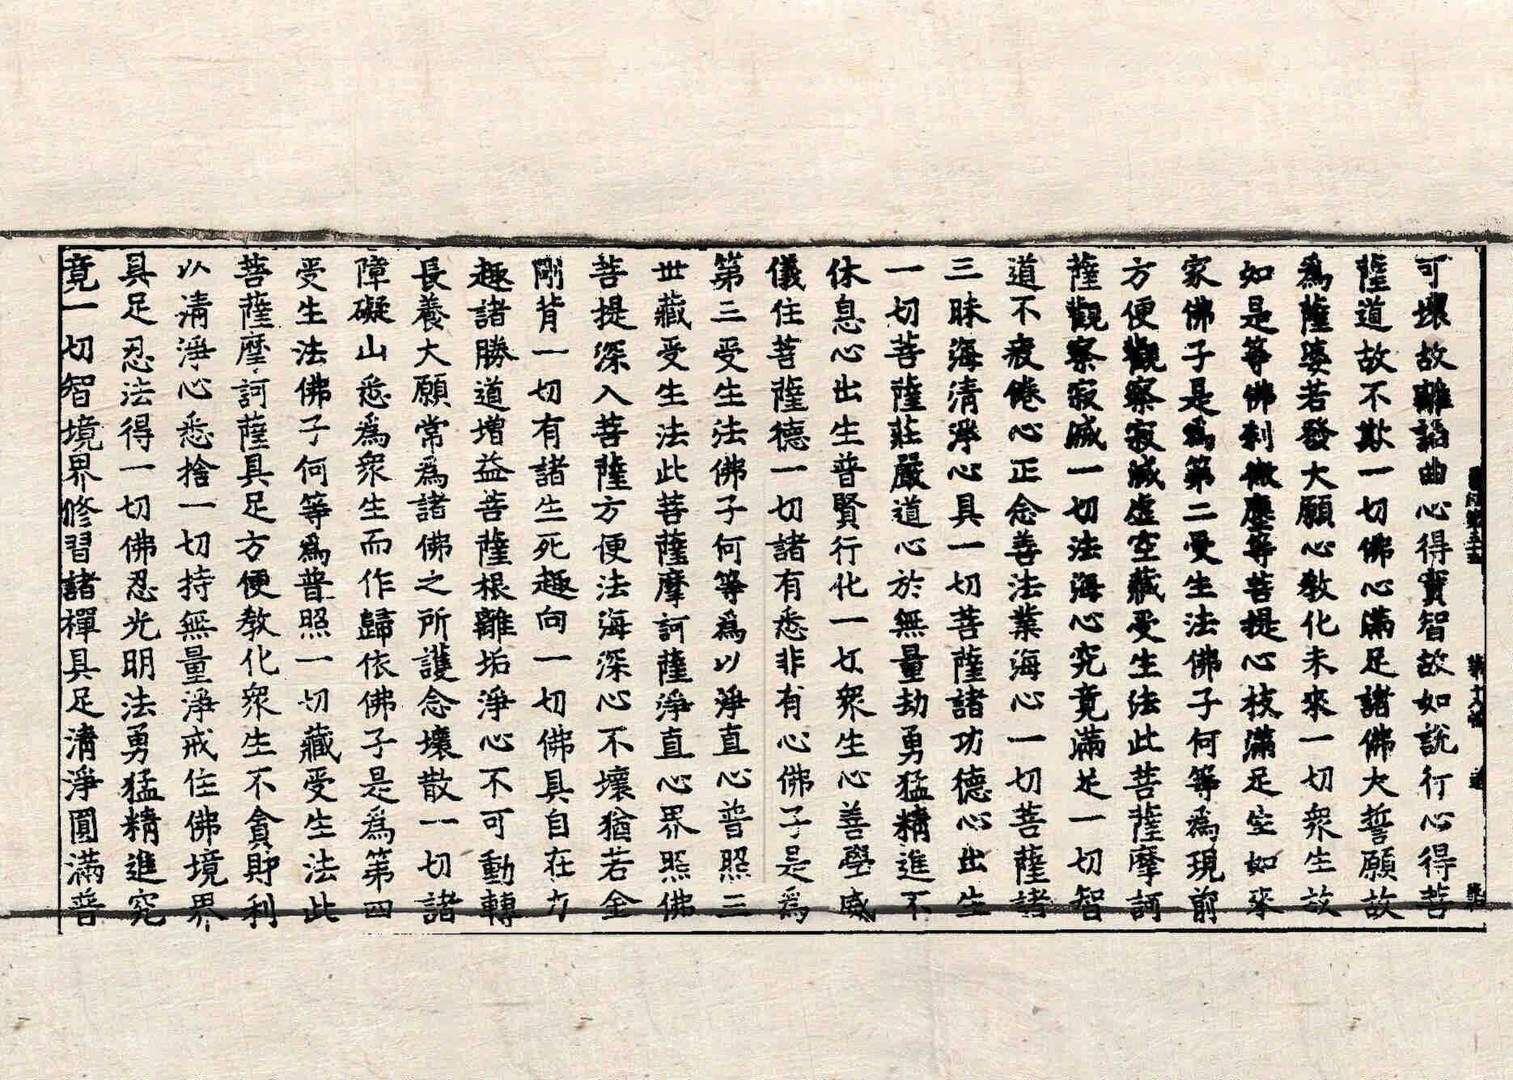 可壞故離諂曲心得寶智故如說行心得菩
薩道故不欺一切佛心滿足諸佛大誓願故
爲薩婆若發大願心教化未來一切衆生故
如是等佛刹微塵等菩提心枝滿足生如來
家佛子是爲第二受生法佛子何等爲現前
方便觀察寂滅虛空藏受生法此菩薩摩訶
薩觀察寂滅一切法海心究竟滿足一切智
道不疲倦心正念善法業海心一切菩薩諸
三昧海清淨心具一切菩薩諸功德心出生
一切菩薩莊嚴道心於無量劫勇猛精進不
休息心出生普賢行化一切衆生心善學威
儀住菩薩德一切諸有悉非有心佛子是爲
第三受生法佛子何等爲以淨直心普照三
世藏受生法此菩薩摩訶薩淨直心界照佛
菩提深入菩薩方便法海深心不壞猶若金
剛背一切有諸生死趣向一切佛具自在力
趣諸勝道增益菩薩根離垢淨心不可動轉
長養大願常爲諸佛之所護念壞散一切諸
障礙山悉爲衆生而作歸依佛子是爲第四
受生法佛子何等爲普照一切藏受生法此
菩薩摩訶薩具足方便教化衆生不貪財利
以清淨心悉捨一切持無量淨戒住佛境界
具足忍法得一切佛忍光明法勇猛精進究
竟一切智境界修習諸禪具足清淨圓滿普